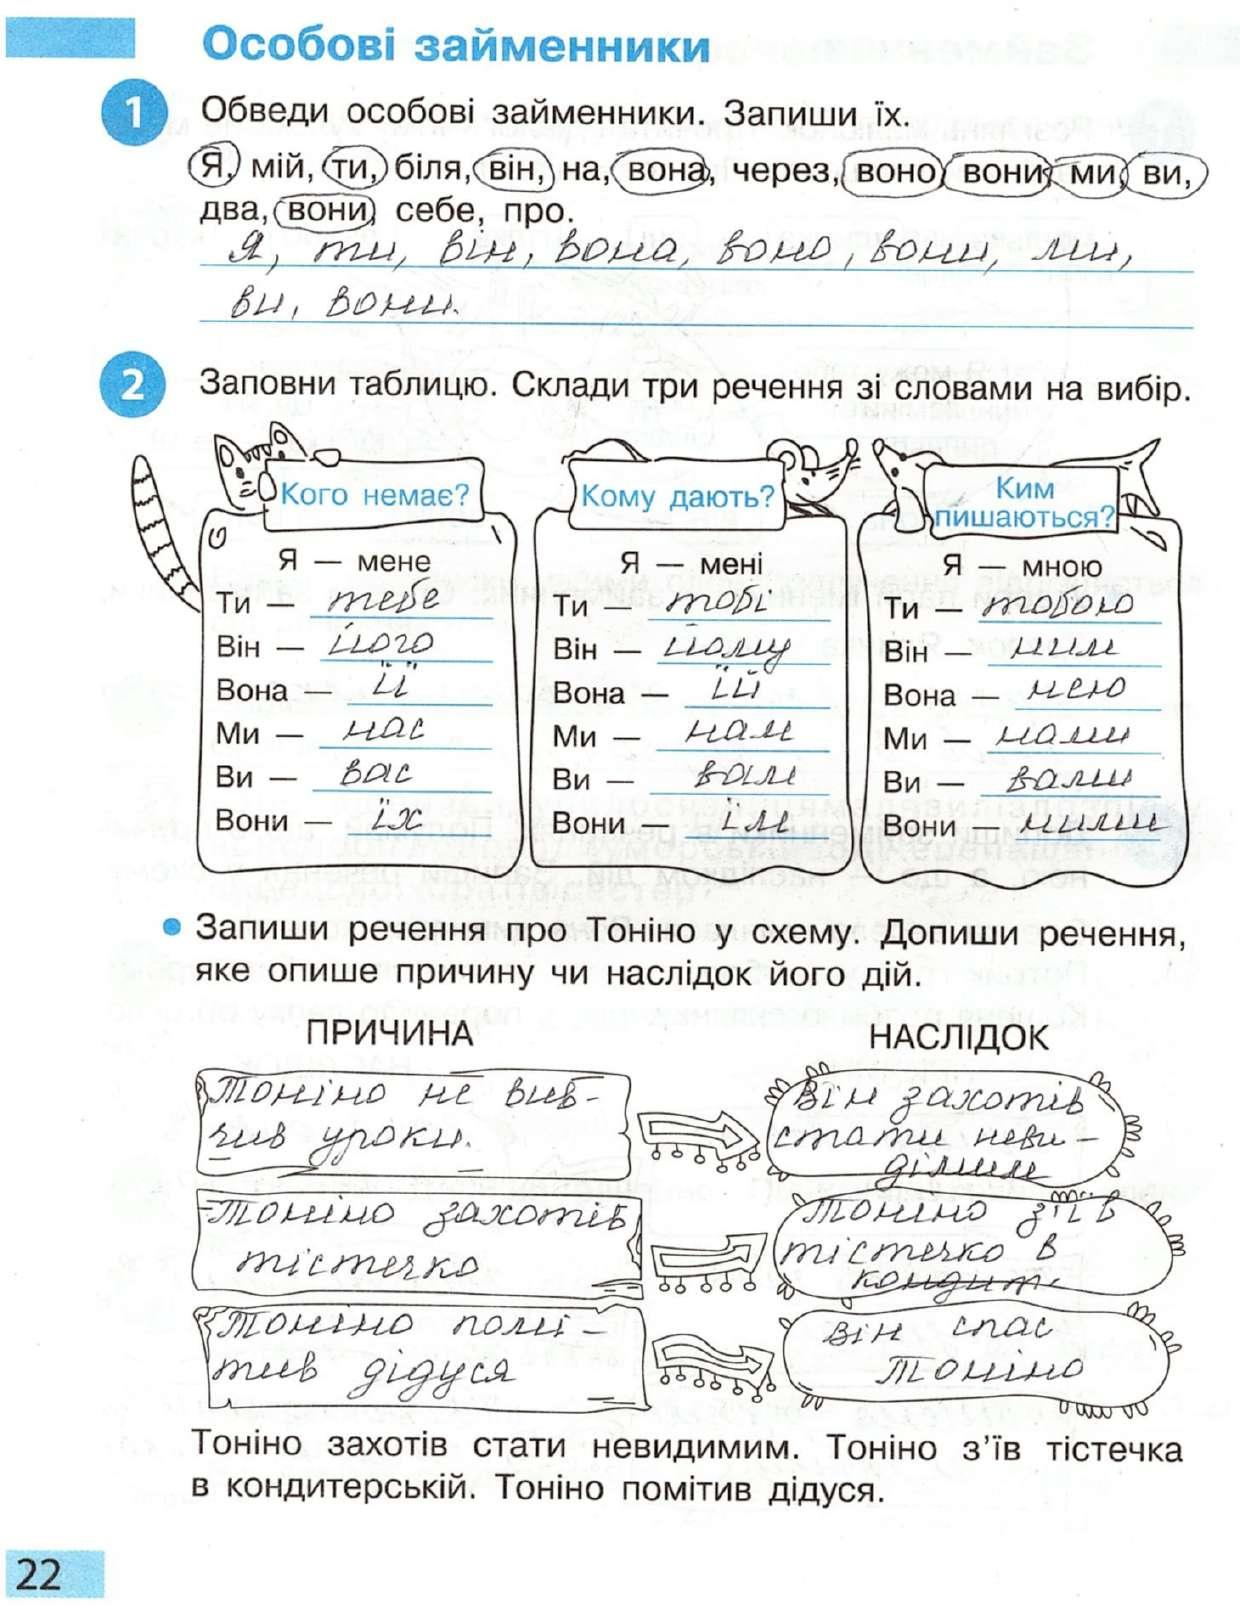 Особові займенники
1 Обведи особові займенники. Запиши їх.
Я, мій, ти, біля, він, на, вона, через, воно, вони, ми, ви,
два, вони, себе, про.
Я, ти, він, вона, воно, вони, ми,
ви, вони.
2 Заповни таблицю. Склади три речення зі словами на вибір.
Кого немає?
Я — мене
Ти — тебе
Він — його
Вона її
Ми — нас
Ви — вас
Вони — їх
Кому дають?
Я — мені
Ти — тобі
Він — йому
Вона — їй
Ми — нам
Ви — вам
Вони їм
Ким
пишаються?
Я — мною
Ти — тобою
Він — ним
Вона нею
Ми — нами
Ви — вами
Вони ними
• Запиши речення про Тоніно у схему. Допиши речення,
яке опише причину чи наслідок його дій.
ПРИЧИНА
НАСЛІДОК
Тоніно не вив-
чив уроки.
Він захотів
стати неви-
дімим
Тоніно захотів
тістечко
Тоніно з'їв
тістечко в
кондит.
Тоніно помі-
тив дідуся
Він спас
Тоніно
Тоніно захотів стати невидимим. Тоніно з'їв тістечка
в кондитерській. Тоніно помітив дідуся.
22